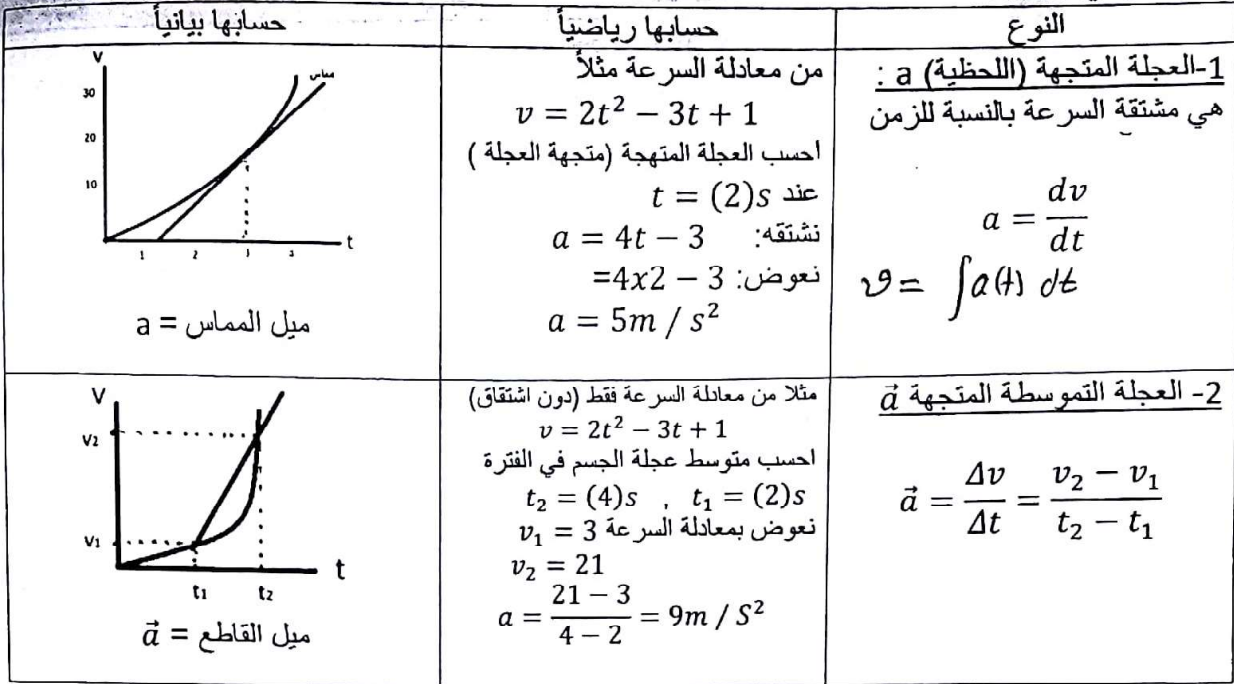 النوع
حسابها رياضياً
حسابها بيانياً
1-العجلة المتجهة (اللحظية) a :
هي مشتقة السرعة بالنسبة للزمن
a = dv/dt
v = ∫a(t) dt
من معادلة السرعة مثلاً
v = 2t² − 3t + 1
احسب العجلة المتهجة (متجهة العجلة )
عند t = (2)s
نشتقه: a = 4t − 3
نعوض: 4x2 − 3=
a = 5m / s²
V
مماس
30
20
10
1 2 3 3 t
ميل المماس = a
2- العجلة التموسطة المتجهة a⃗
a⃗ = Δv/Δt = (v₂ − v₁)/(t₂ − t₁)
مثلا من معادلة السرعة فقط (دون اشتقاق)
v = 2t² − 3t + 1
احسب متوسط عجلة الجسم في الفترة
t₂ = (4)s , t₁ = (2)s
نعوض بمعادلة السرعة v₁ = 3
v₂ = 21
a = (21 − 3)/(4 − 2) = 9m / S²
V
V2
V1
t
t1 t2
ميل القاطع = a⃗